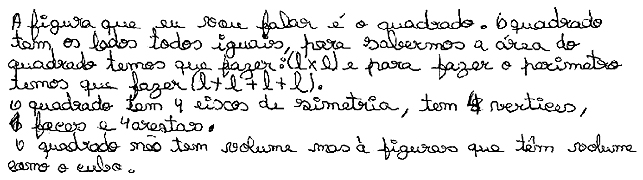 A figura que eu vou falar é o quadrado. O quadrado
tem os lados todos iguais, para sabermos a área do
quadrado temos que fazer: (l x l) e para fazer o perimetro
temos que fazer (l + l + l + l).
O quadrado tem 4 eixos de simetria, tem 4 vertices,
faces e 4 arestas.
O quadrado não tem volume mas à figuras que têm volume
como o cubo.